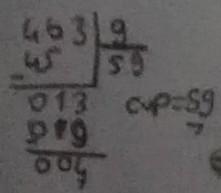 463 9
- 45 59
013 cup=59
019
004